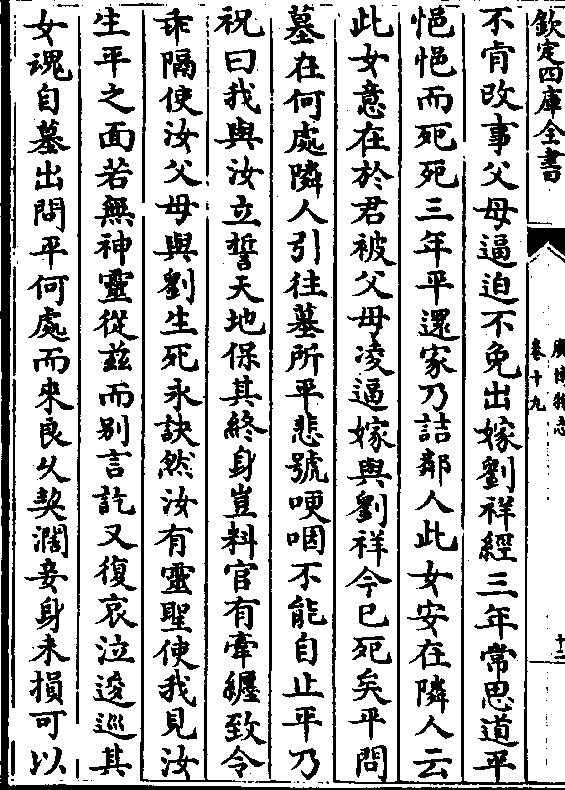 欽定四庫全書
廣博物志
卷十九
十二
不肯改事父母逼迫不免出嫁劉祥經三年常思道平
悒悒而死死三年平還家乃詰鄰人此女安在隣人云
此女意在於君被父母凌逼嫁與劉祥今已死矣平問
墓在何處隣人引往墓所平悲號哽咽不能自止平乃
祝曰我與汝立誓天地保其終身豈料官有牽纒致令
乖隔使汝父母與劉生死永訣然汝有靈聖使我見汝
生平之面若無神靈從兹而别言訖又復哀泣逡巡其
女魂自墓出問平何處而來良乆契濶妾身未損可以